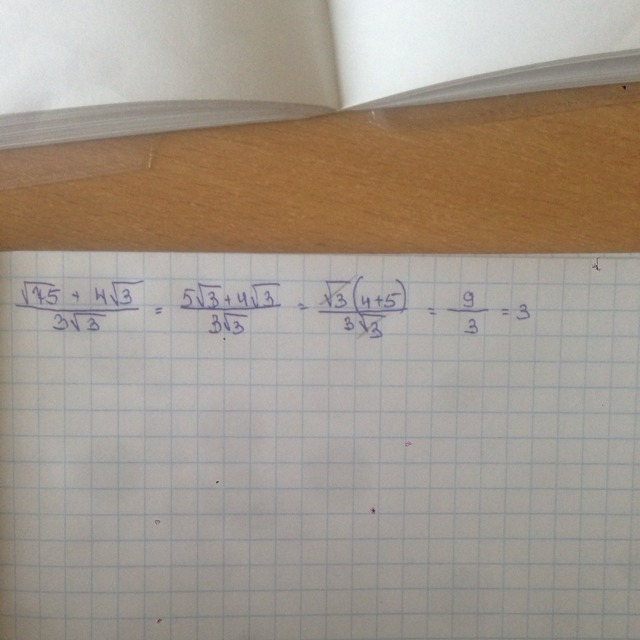 (√75 + 4√3)/(3√3) = (5√3+4√3)/(3√3) = (√3(4+5))/(3√3) = 9/3 = 3